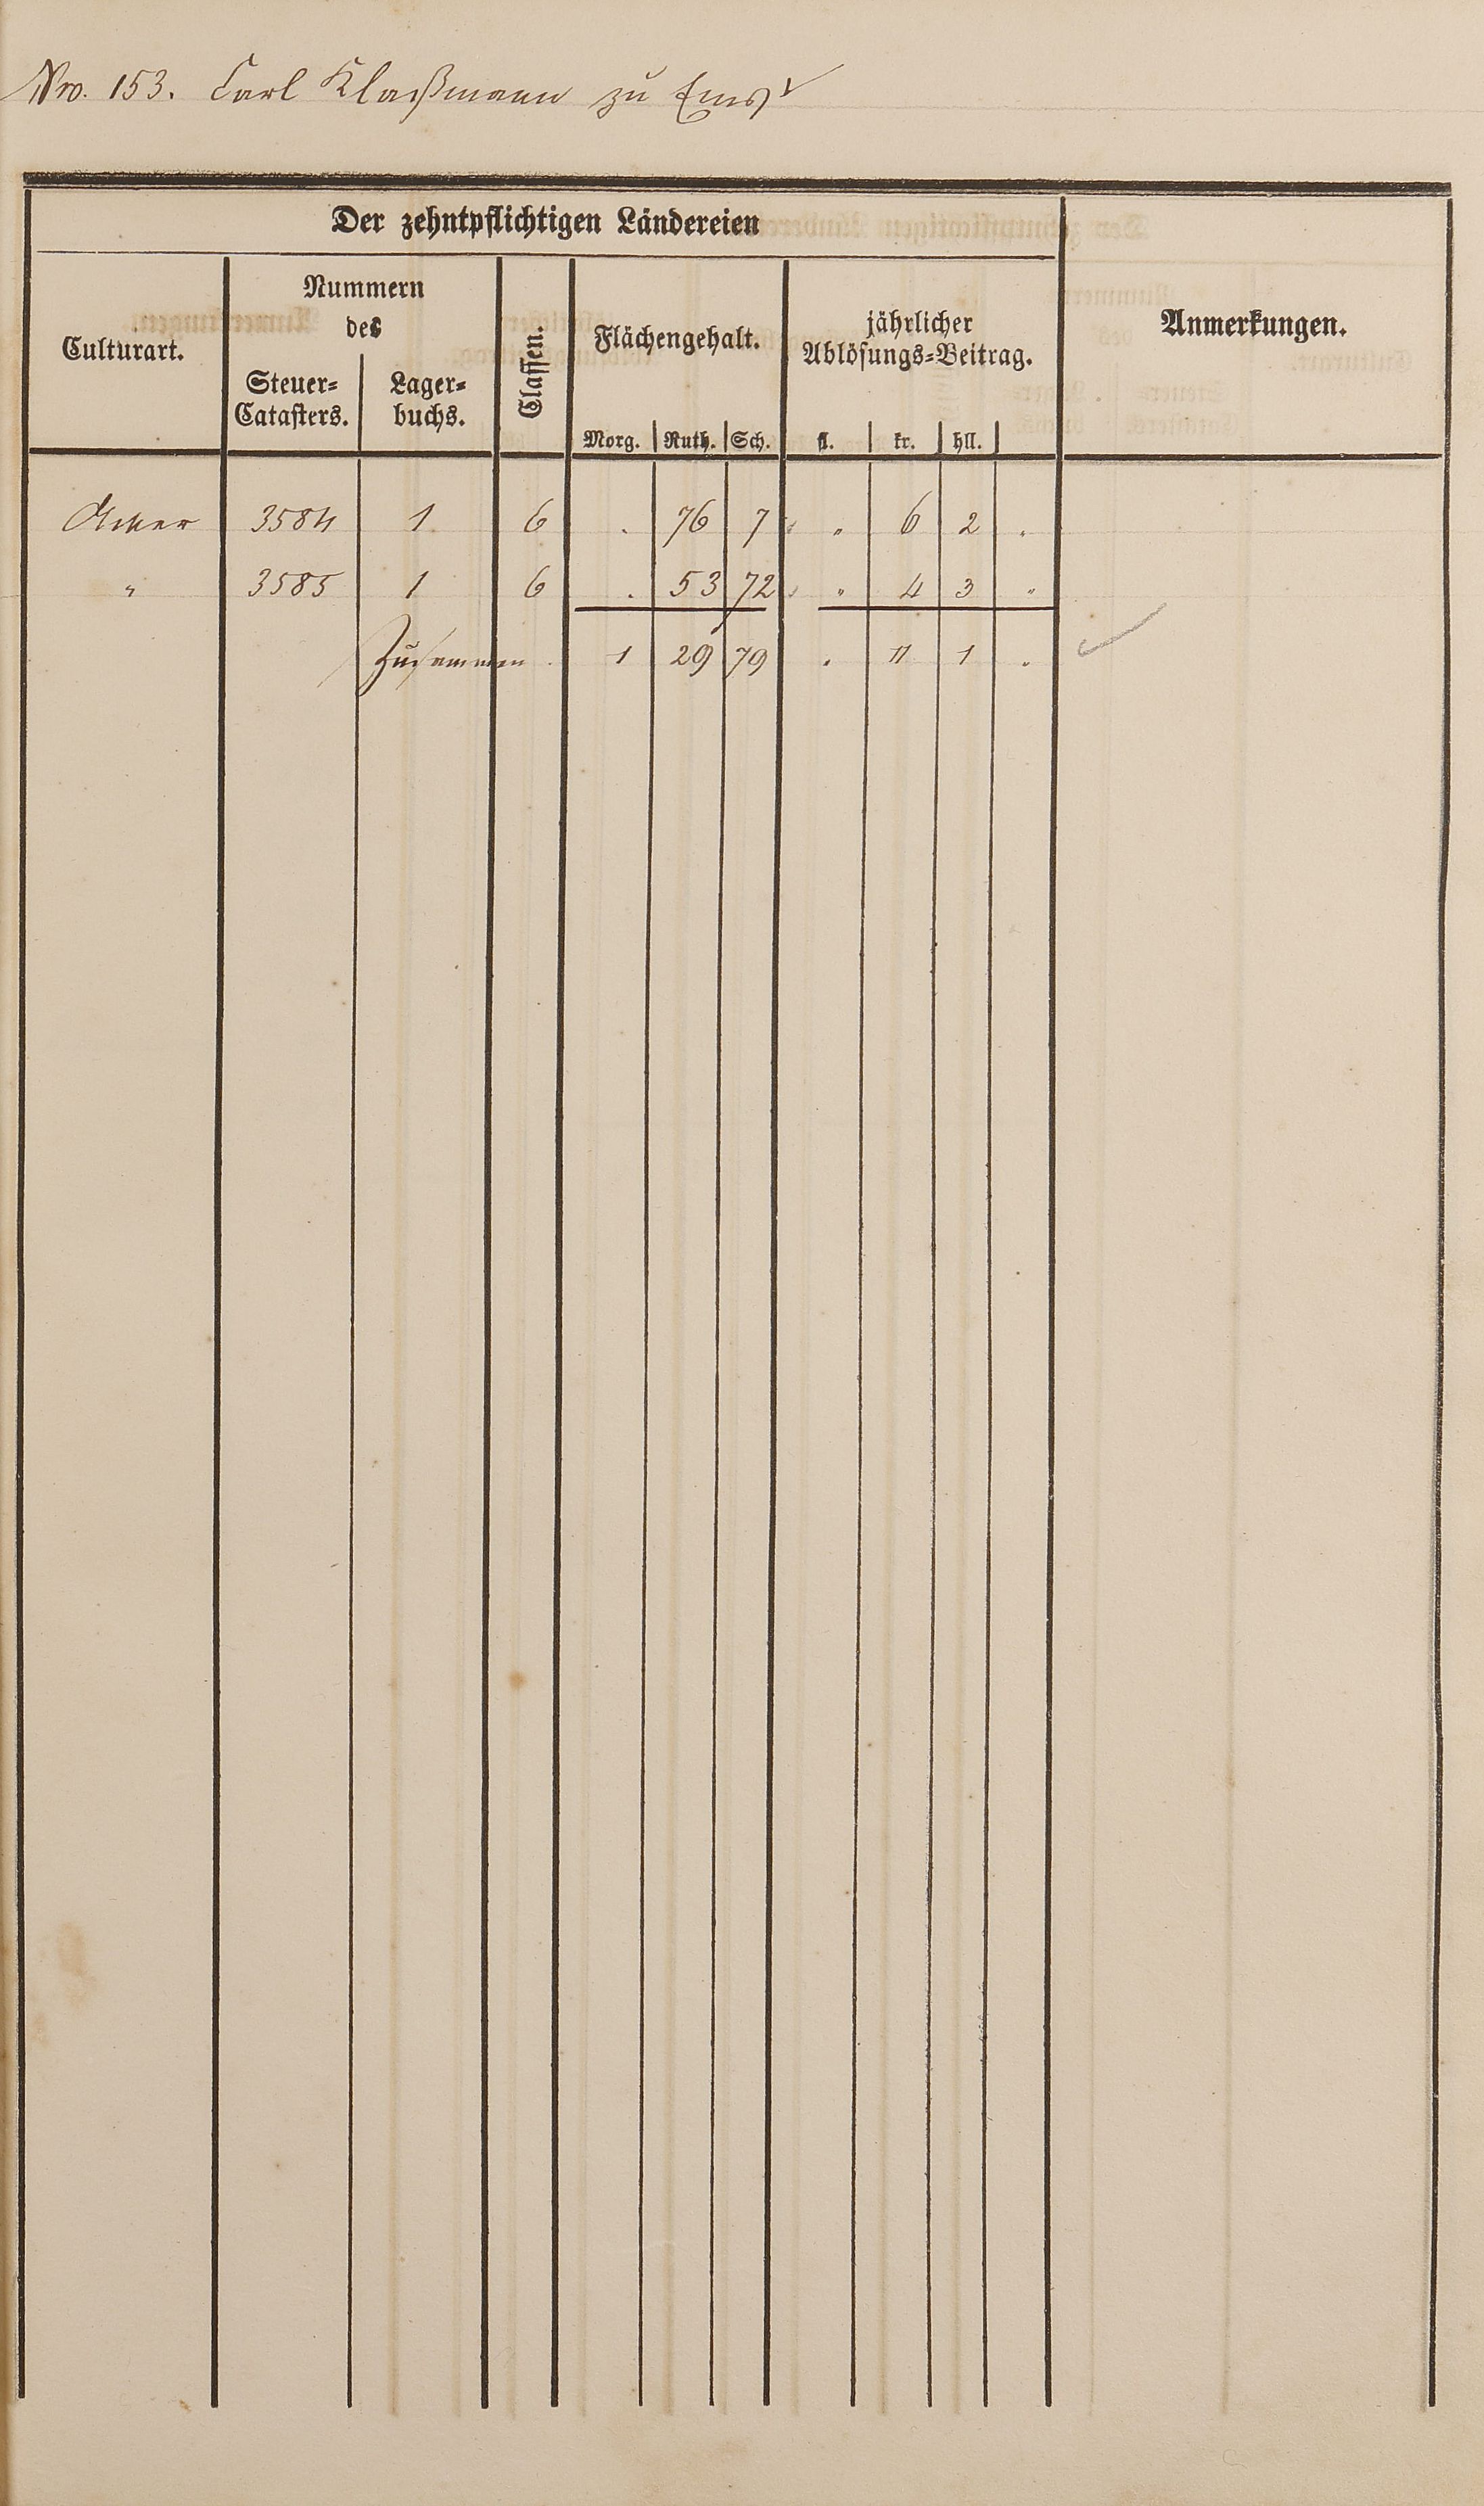 Nro. 153. Carl Klaßmann zu Ems
Der zehntpflichtigen Ländereien
Culturart.
Nummern
des
Steuer=
Catasters.
Lager=
buchs.
Classen.
Flächengehalt.
Morg. Ruth. Sch.
jährlicher
Ablösungs=Beitrag.
fl. kr. hll.
Anmerkungen.
Acker 3584 1 6 . 76 7 „ 6 2 .
„ 3585 1 6 . 53 72 „ 4 3 „
Zusammen . 1 29 79 . 11 1 .